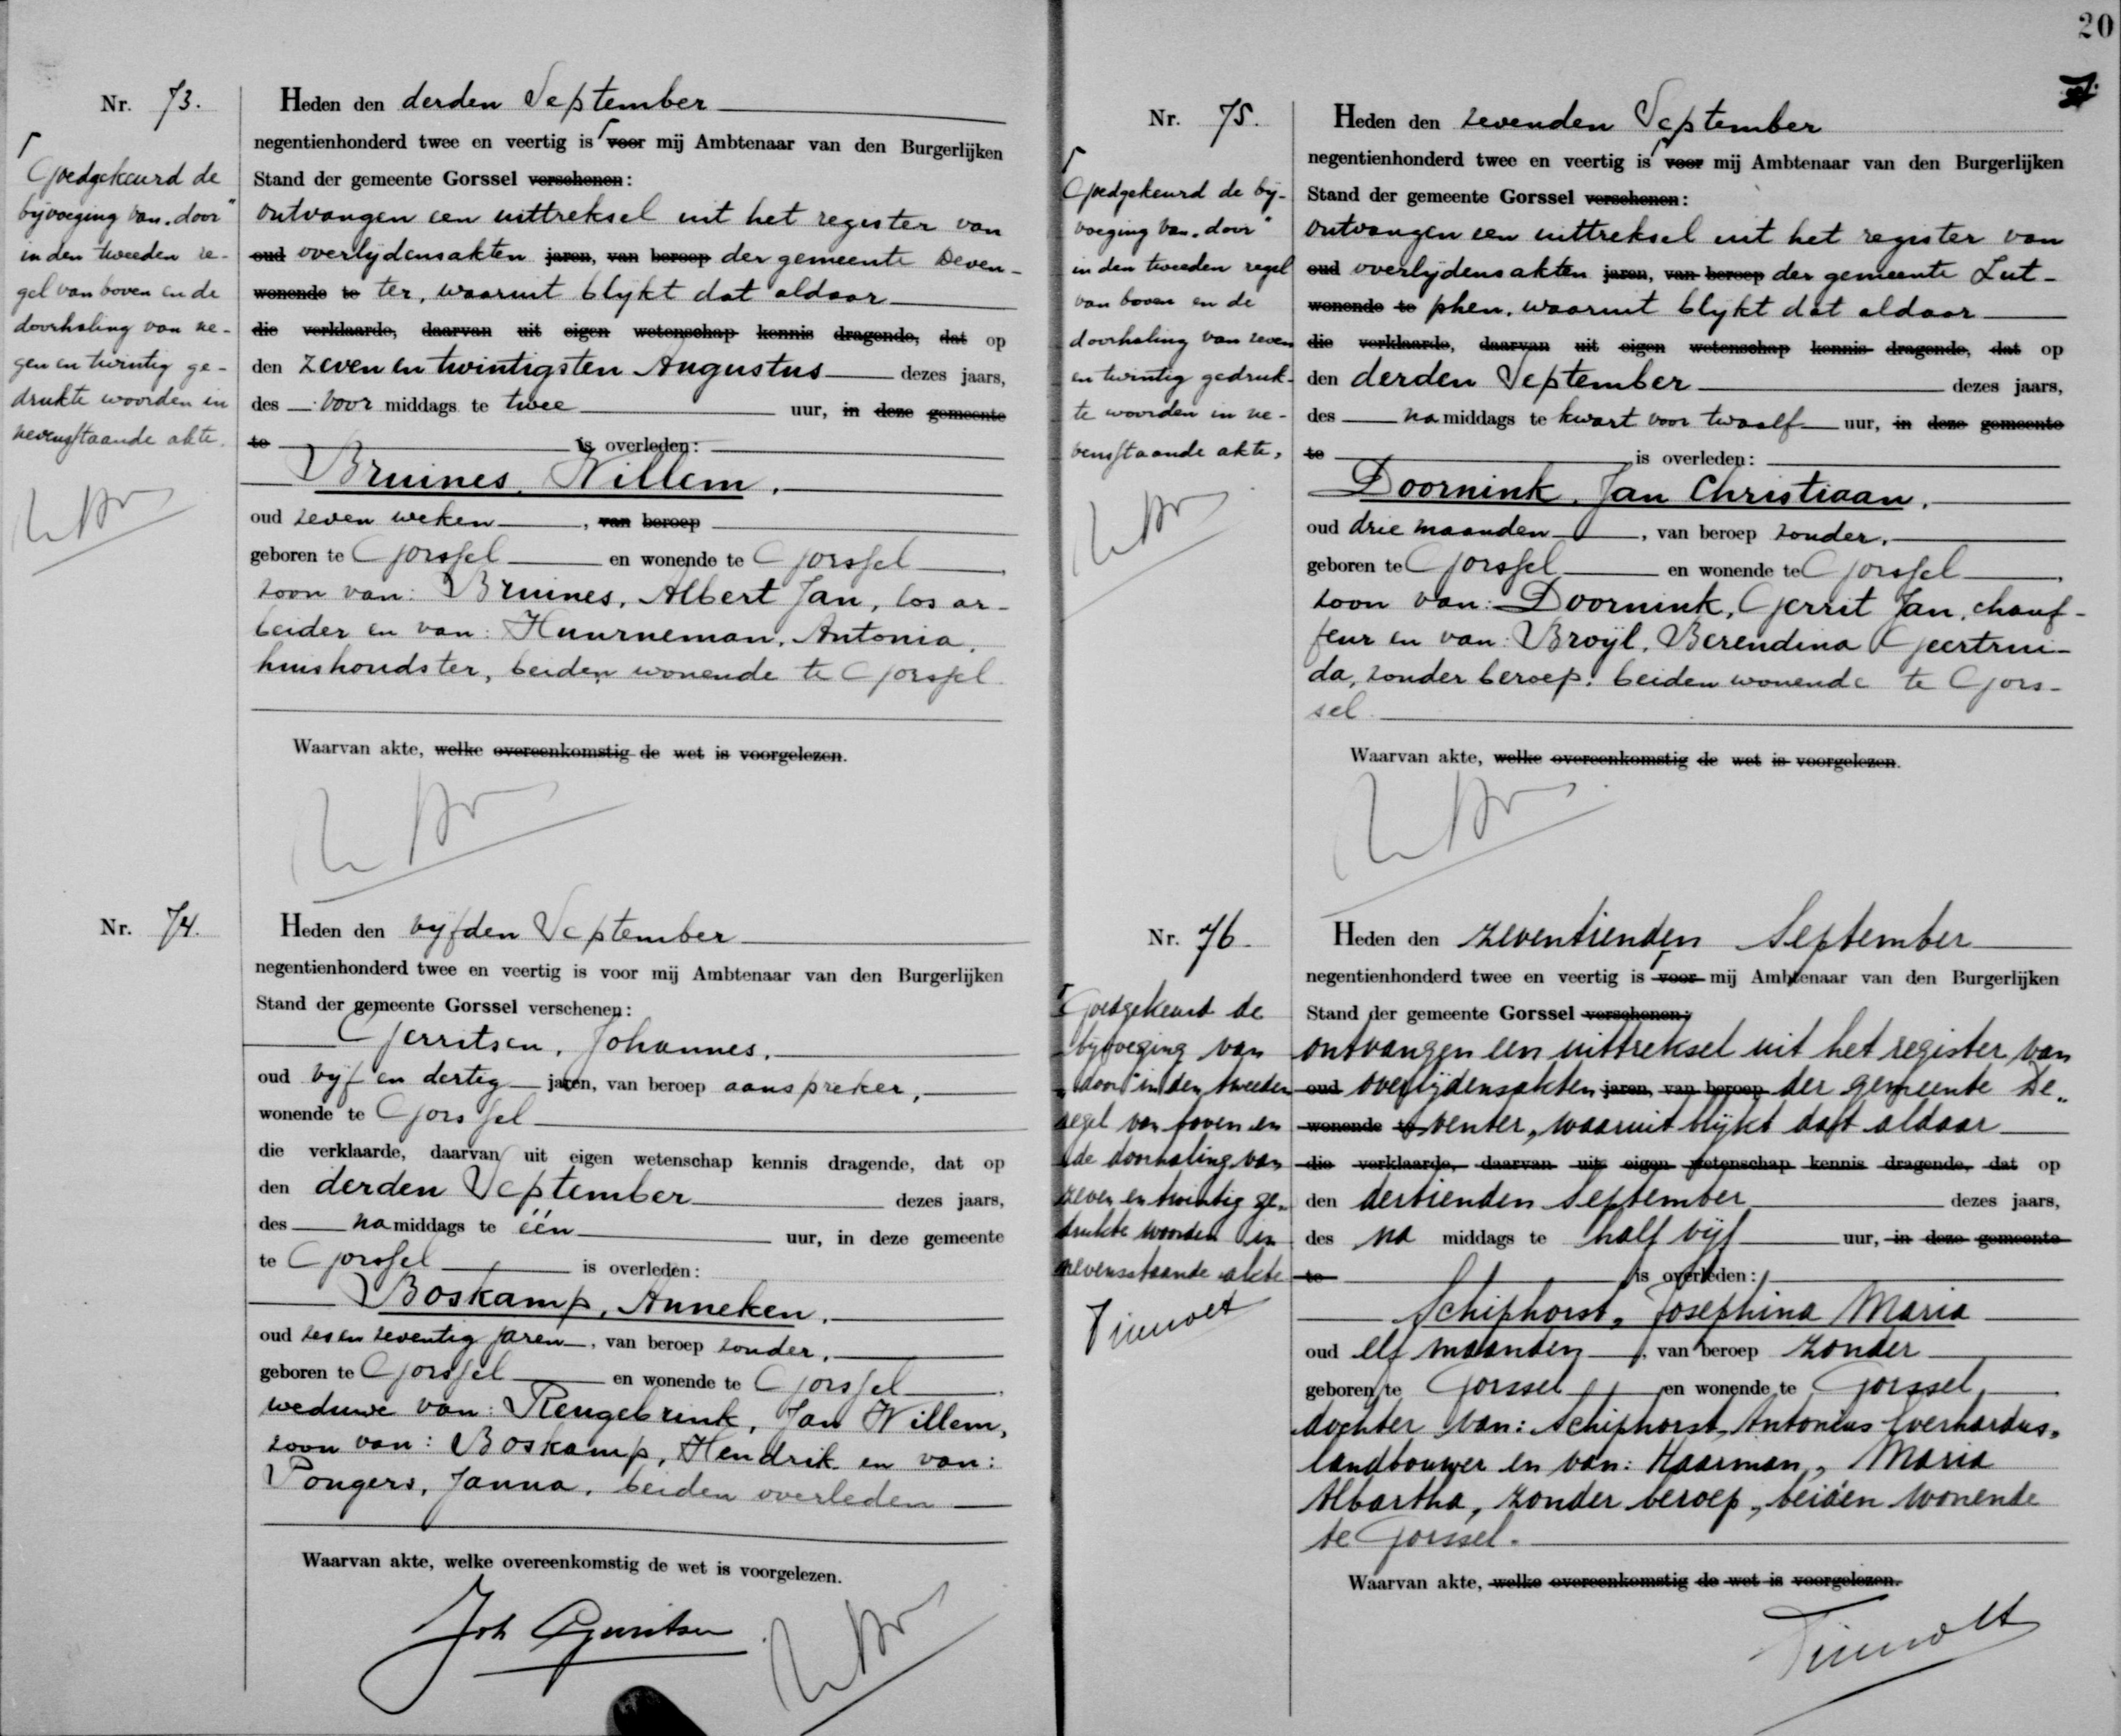 20
Nr. 73.
Goedgekeurd de
bijvoeging van "door"
in den tweeden re-
gel van boven en de
doorhaling van ne-
gen en twintig ge-
drukte woorden in
nevenstaande akte.
Heden den derden September
negentienhonderd twee en veertig is voor mij Ambtenaar van den Burgerlijken
Stand der gemeente Gorssel verschenen:
ontvangen een uittreksel uit het register van
oud overlijdensakten jaren, van beroep der gemeente Deven-
wonende te ter, waaruit blijkt dat aldaar
die verklaarde, daarvan uit eigen wetenschap kennis dragende, dat op
den zeven en twintigsten Augustus dezes jaars,
des voor middags te twee uur, in deze gemeente
te is overleden:
Bruines, Willem.
oud zeven weken, van beroep
geboren te Gorssel en wonende te Gorssel,
zoon van: Bruines, Albert Jan, los ar-
beider en van: Huurneman, Antonia,
huishoudster, beiden wonende te Gorssel
Waarvan akte, welke overeenkomstig de wet is voorgelezen.
Nr. 74.
Heden den vijfden September
negentienhonderd twee en veertig is voor mij Ambtenaar van den Burgerlijken
Stand der gemeente Gorssel verschenen:
Gerritsen, Johannes.
oud vijf en dertig jaren, van beroep aanspreker,
wonende te Gorssel
die verklaarde, daarvan uit eigen wetenschap kennis dragende, dat op
den derden September dezes jaars,
des na middags te één uur, in deze gemeente
te Gorssel is overleden:
Boskamp, Anneken.
oud zes en zeventig jaren, van beroep zonder,
geboren te Gorssel en wonende te Gorssel,
weduwe van: Rengebrink, Jan Willem,
zoon van: Boskamp, Hendrik en van:
Pongers, Janna, beiden overleden
Waarvan akte, welke overeenkomstig de wet is voorgelezen.
Joh Gerritsen
Nr. 75.
Goedgekeurd de bij-
voeging van "door"
in den tweeden regel
van boven en de
doorhaling van zeven
en twintig gedruk-
te woorden in ne-
venstaande akte.
Heden den zevenden September
negentienhonderd twee en veertig is voor mij Ambtenaar van den Burgerlijken
Stand der gemeente Gorssel verschenen:
ontvangen een uittreksel uit het register van
oud overlijdensakten jaren, van beroep der gemeente Zut-
wonende te phen, waaruit blijkt dat aldaar
die verklaarde, daarvan uit eigen wetenschap kennis dragende, dat op
den derden September dezes jaars,
des na middags te kwart voor twaalf uur, in deze gemeente
te is overleden:
Doornink, Jan Christiaan.
oud drie maanden, van beroep zonder,
geboren te Gorssel en wonende te Gorssel,
zoon van: Doornink, Gerrit Jan, chauf-
feur en van: Broijl, Berendina Geertrui-
da, zonder beroep, beiden wonende te Gors-
sel.
Waarvan akte, welke overeenkomstig de wet is voorgelezen.
Nr. 76.
Goedgekeurd de
bijvoeging van
"door" in den tweeden
regel van boven en
de doorhaling van
zeven en twintig ge-
drukte woorden in
nevenstaande akte
Heden den zeventienden September
negentienhonderd twee en veertig is voor mij Ambtenaar van den Burgerlijken
Stand der gemeente Gorssel verschenen:
ontvangen een uittreksel uit het register van
oud overlijdensakten jaren, van beroep der gemeente De-
wonende te venter, waaruit blijkt dat aldaar
die verklaarde, daarvan uit eigen wetenschap kennis dragende, dat op
den dertienden September dezes jaars,
des na middags te half vijf uur, in deze gemeente
te is overleden:
Schiphorst, Josephina Maria
oud elf maanden, van beroep zonder
geboren te Gorssel en wonende te Gorssel,
dochter van: Schiphorst, Antonius Everhardus,
landbouwer en van: Haarman, Maria
Albartha, zonder beroep, beiden wonende
te Gorssel.
Waarvan akte, welke overeenkomstig de wet is voorgelezen.